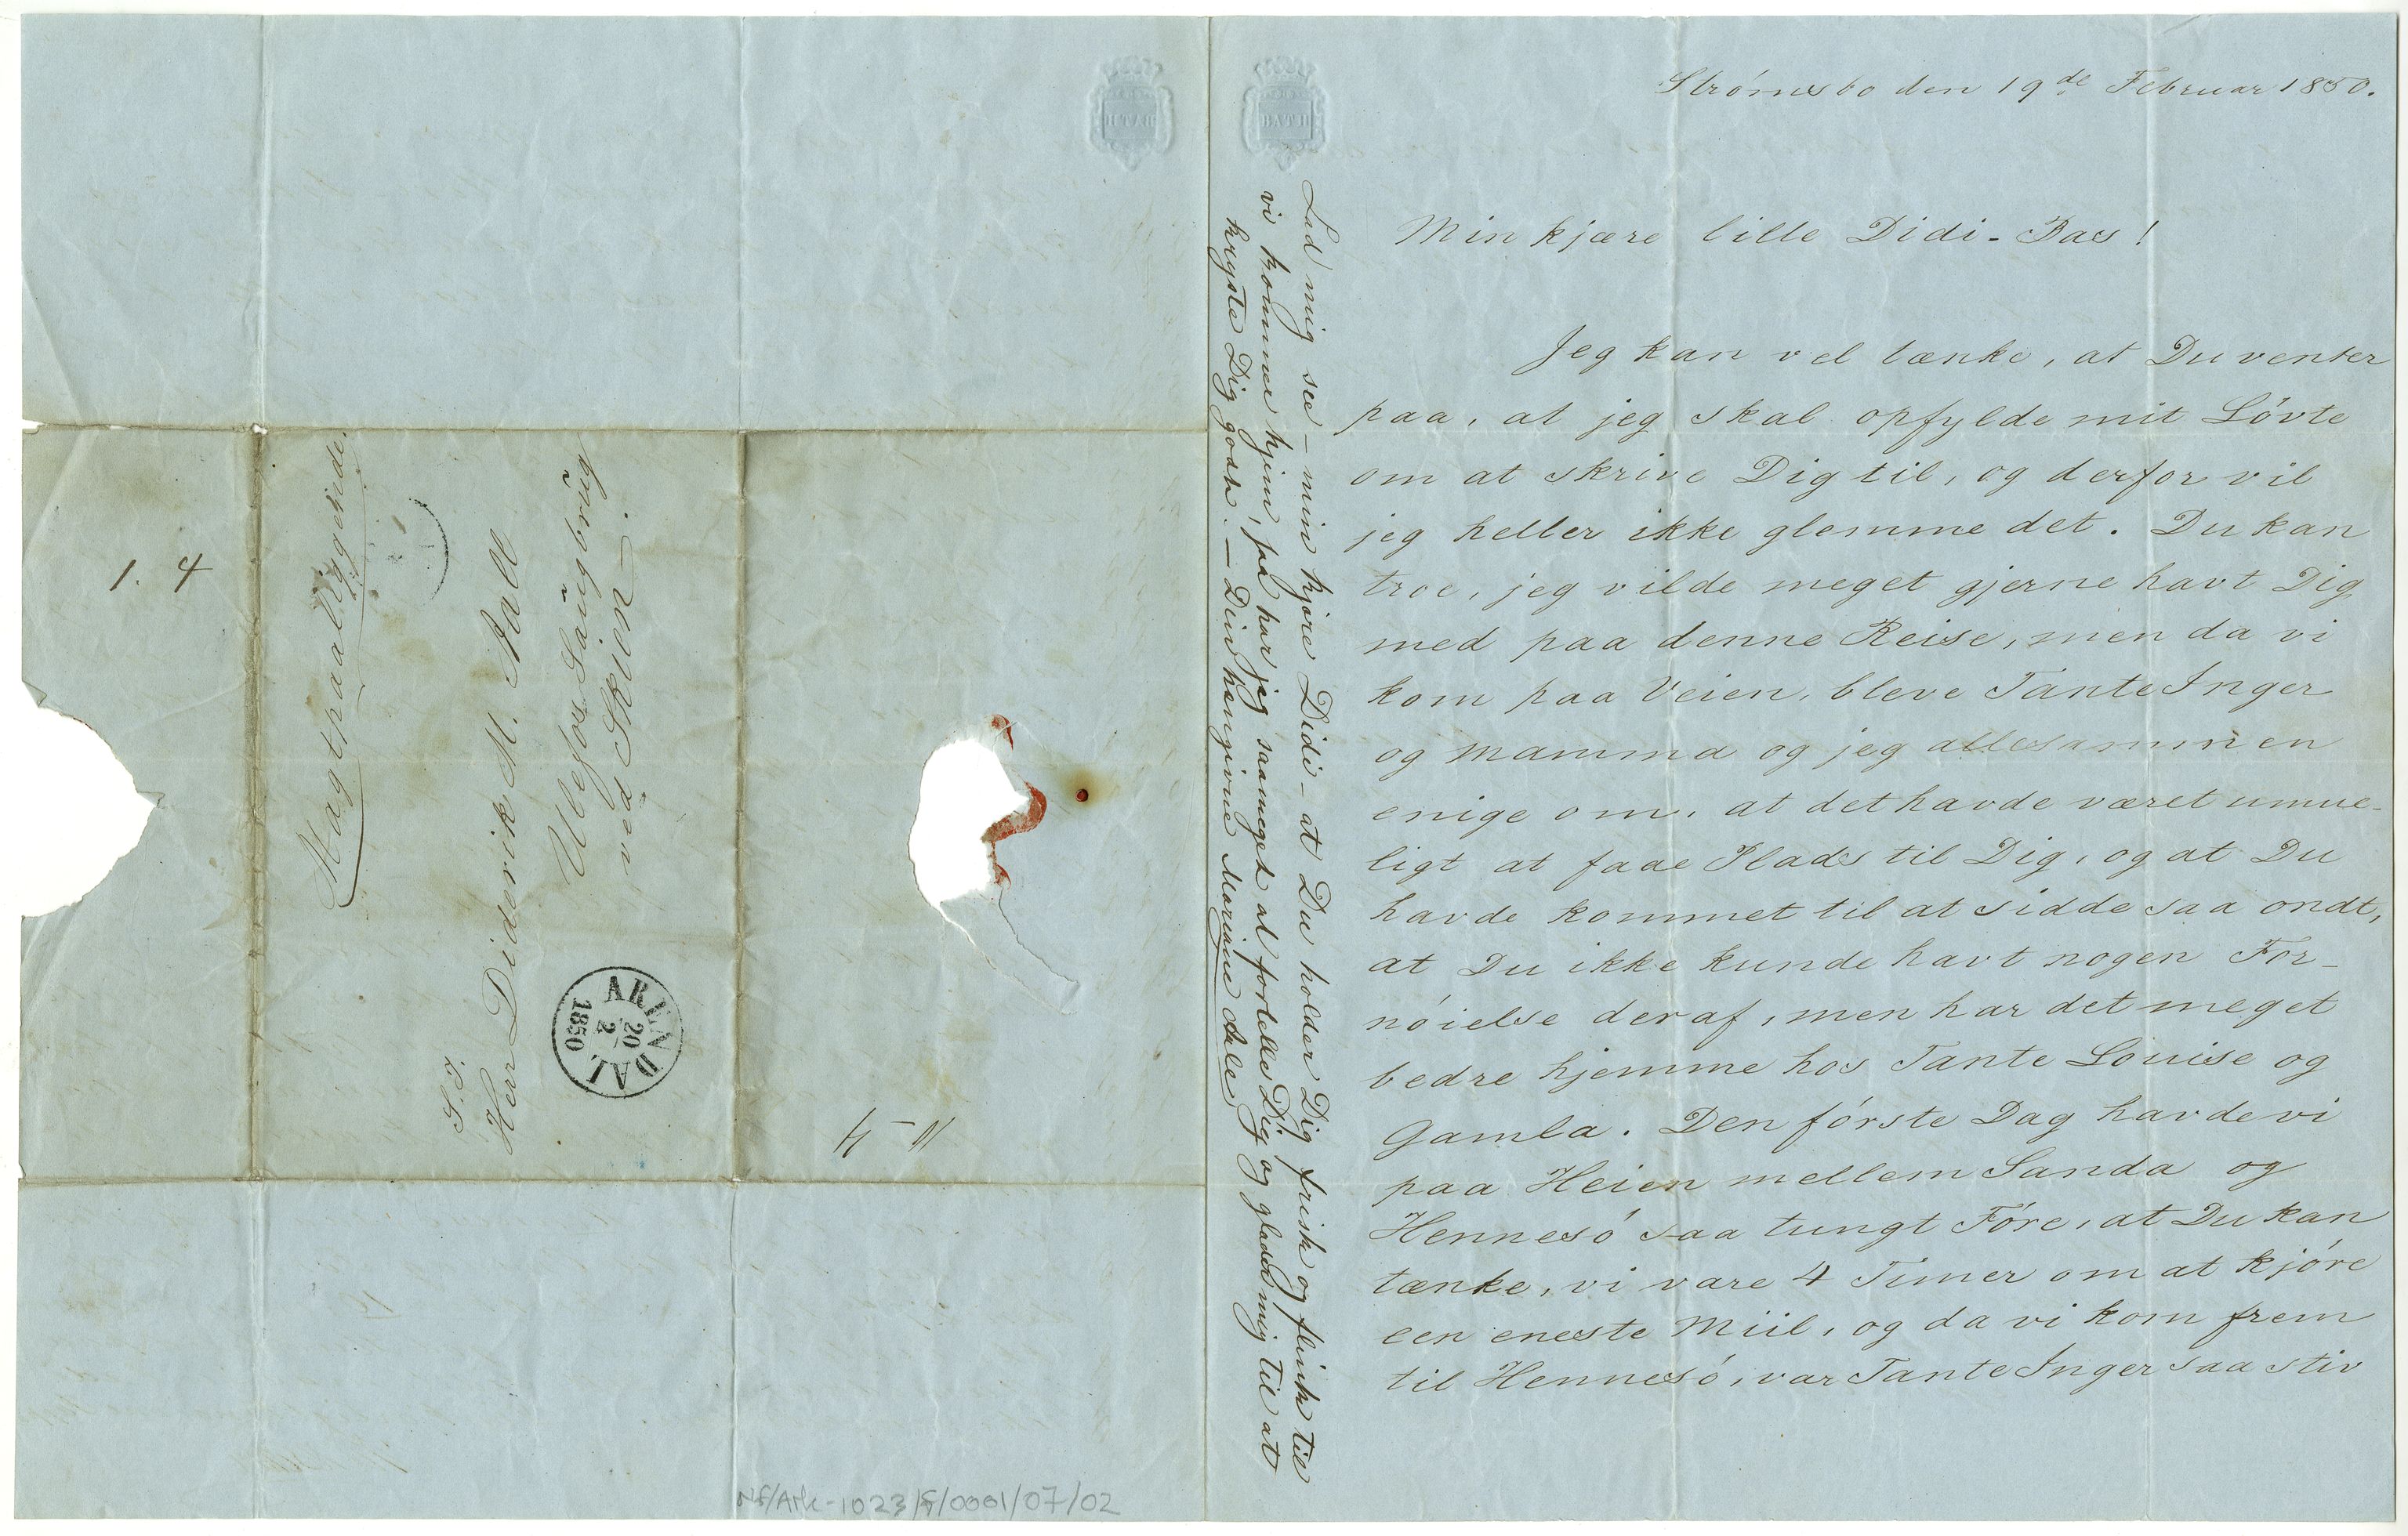 Strómsbo den 19de Februar 1850.
Min kjære lille Didi-Bas!
Jeg kan vel tænke, at Du venter
paa, at jeg skal opfylde mit Lóvte
om at skrive Dig til, og derfor vil
jeg heller ikke glemme det. Du kan
troe, jeg vilde meget gjerne havt Dig
med paa denne Reise, men da vi
kom paa Veien, bleve Tante Inger
og Mamma og jeg allesammen
enige om, at det havde været umue-
ligt at faae Plads til Dig, og at Du
havde kommet til at sidde saa ondt,
at Du ikke kunde havt nogen For-
nóielse deraf, men har det meget
bedre hjemme hos Tante Louise og
Gamla. Den fórste Dag havde vi
paa Heien mellem Sanda og
Hennesó saa tungt Fóre, at Du kan
tænke, vi vare 4 Timer om at kjóre
een eneste Miil, og da vi kom frem
til Hennesó, var Tante Inger saa stiv
Lad mig see – min kjære Didi – at Du holder Dig frisk og flink til
vi komme hjem, så har jeg saameget at fortelle Dig og glæder mig til at
kysste Dig godt. – Din hengivne Mariane Aale
BATH
S. T.
Herr Diderik M. Aall
Ulefos Långbrŭg
ved Skien.
Magtpaaliggende.
ARENDAL
20
2
1850
1. 4
Nf/Ark-1023/F/0001/07/02